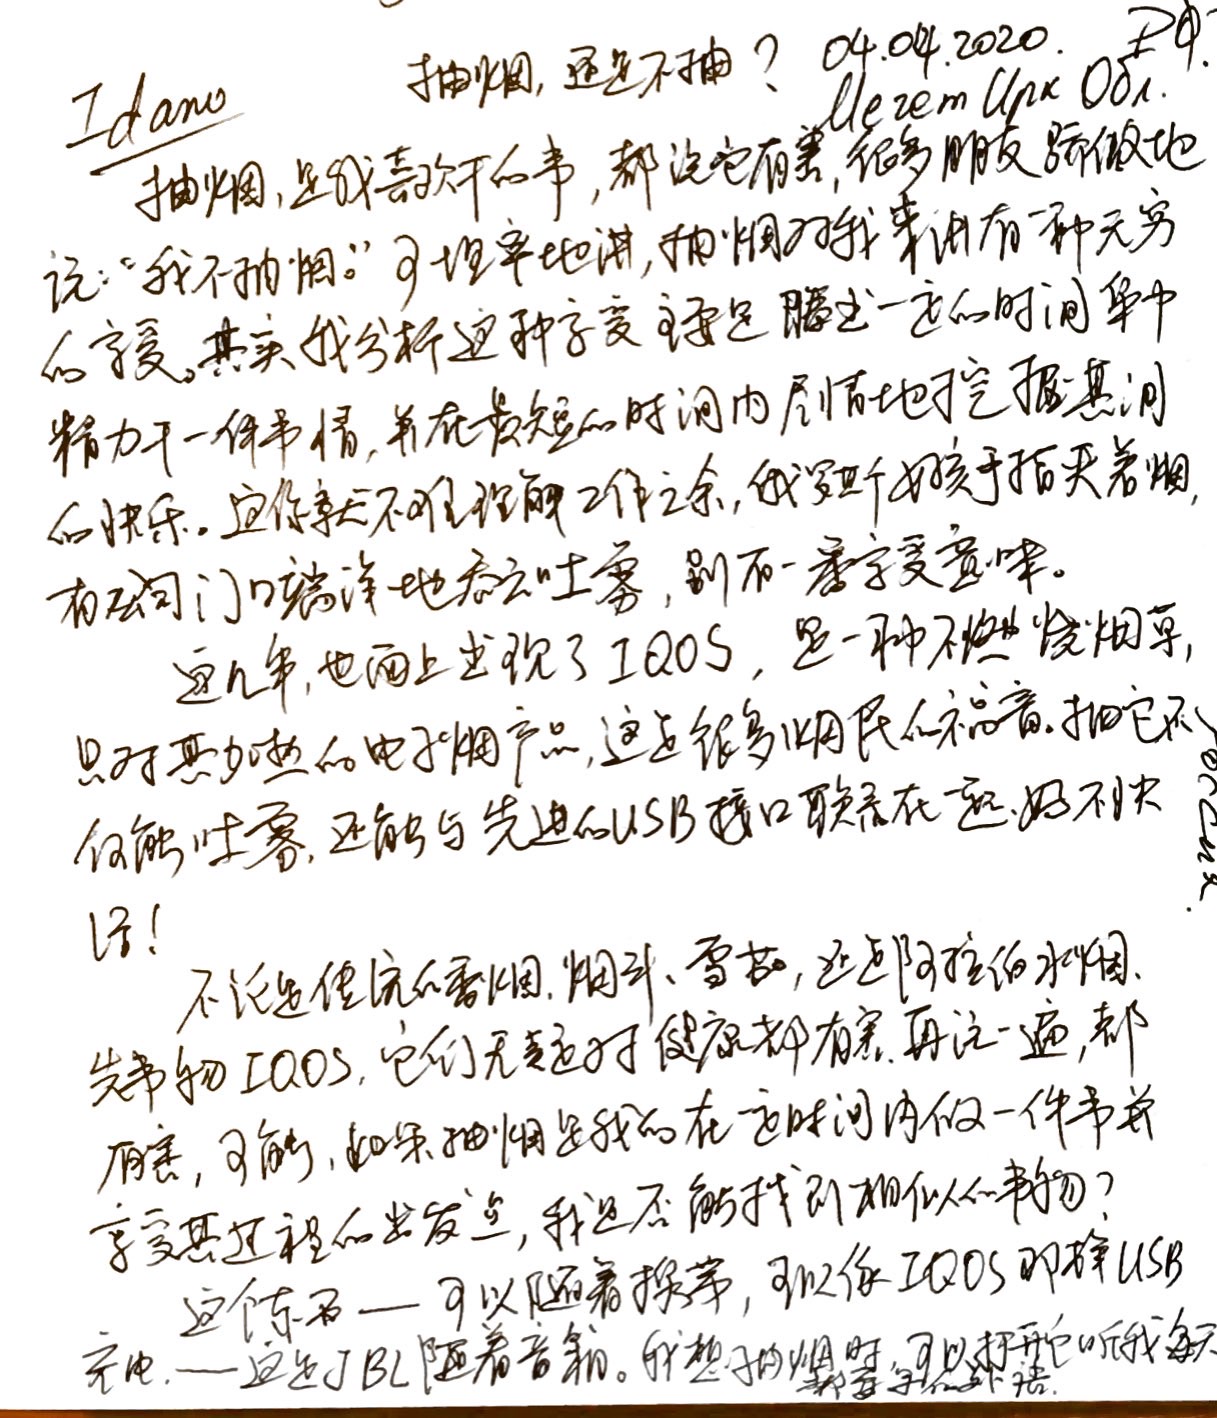 Idano
抽烟，还是不抽？ 04.04.2020. РФ.
Мегет Ирк Обл.
抽烟，是我喜欢干的事，都说它有害，很多朋友骄傲地
说：“我不抽烟。”可坦率地讲，抽烟对我来讲有一种无穷
的享受。其实我分析这种享受主要是腾出一定的时间集中
精力干一件事情，并在最短的时间内尽情地挖掘其间
的快乐。这你就不难理解工作之余，俄罗斯女孩手指夹着烟，
在公司门口端详地吞云吐雾，别有一番享受意味。
这几年，也面上出现了IQOS，是一种不燃烧烟草，
只对其加热的电子烟产品，这是很多烟民的福音。抽它不
仅能吐雾，还能与先进的USB接口联系在一起，好不快
活！
不论是传统的香烟、烟斗、雪茄，还是阿拉伯水烟、
先事物IQOS，它们无疑对健康都有害，再说一遍，都
有害，可能，如果抽烟是我的在一定时间内做一件事并
享受其过程的出发点，我是否能找到相似的事物？
这个东西——可以随着携带，可以像IQOS那样USB
充电，——这是JBL随着音箱。我想抽烟时，可以打开它听我每天
外语.